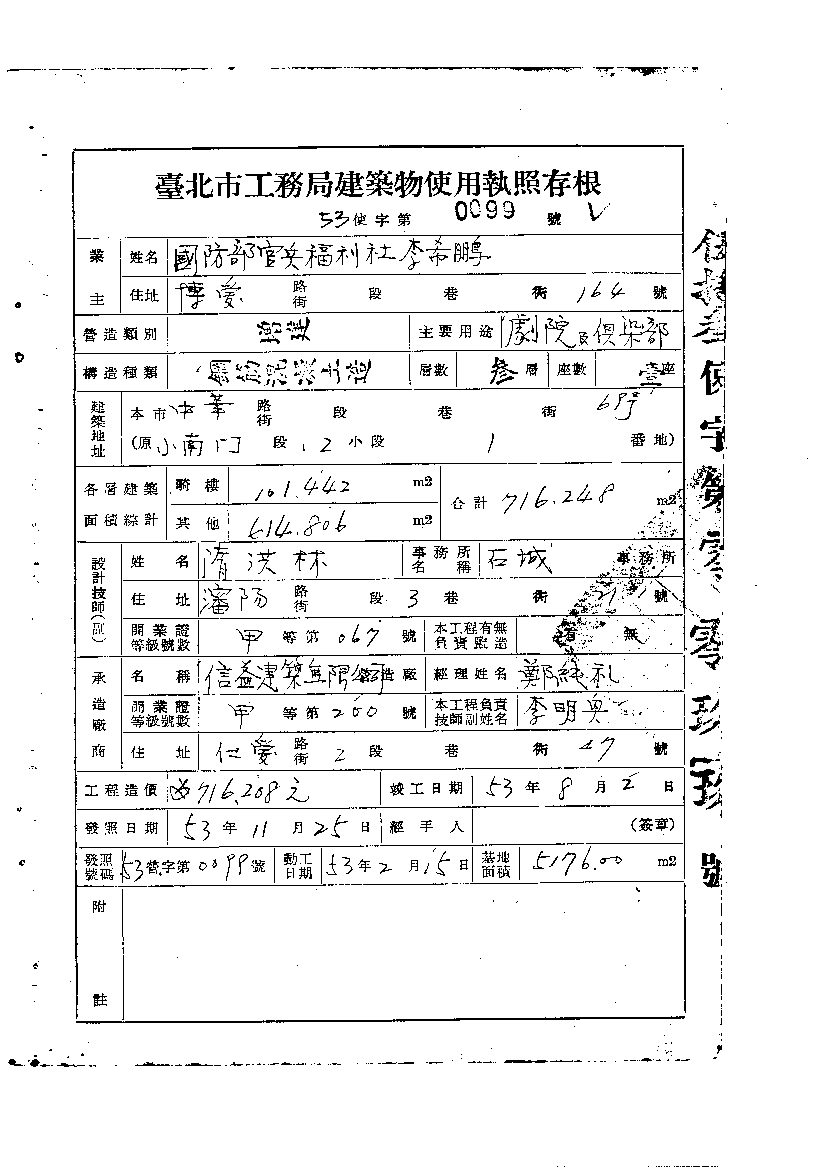 臺北市工務局建築物使用執照存根
53使字第 0099 號 V
業主 姓名 國防部官兵福利社李希鵬
住址 博愛 路街 段 巷 街 164 號
營造類別 增建 主要用途 劇院及俱樂部
構造種類 鋼筋混凝土造 層數 叁層 座數 壹座
建築地址 本市 中華 路街 段 巷 街 69号
(原 小南门 段 2 小段 1 番地)
各層建築面積綜計 騎樓 101.442 m2 合計 716.248 m2
其他 614.806 m2
設計技師(副) 姓名 隋洪林 事務所名稱 石城 事務所
住址 瀋陽 路街 段 3 巷 街 號
開業證等級號數 甲 等第 067 號 本工程有無負責監造 有 無
承造廠商 名稱 信益建築 營造廠 經理姓名 鄭純礼
開業證等級號數 甲 等第 200 號 本工程負責技師副姓名 李明
住址 仁愛 路街 2 段 巷 街 47 號
工程造價 716,208元 竣工日期 53年 8 月 2 日
發照日期 53年 11 月 25 日 經手人 (簽章)
發照號碼 53營字第0099號 動工日期 53年 2 月 15 日 基地面積 5176.00 m2
附註
伍拾叁使字第零零玖玖號